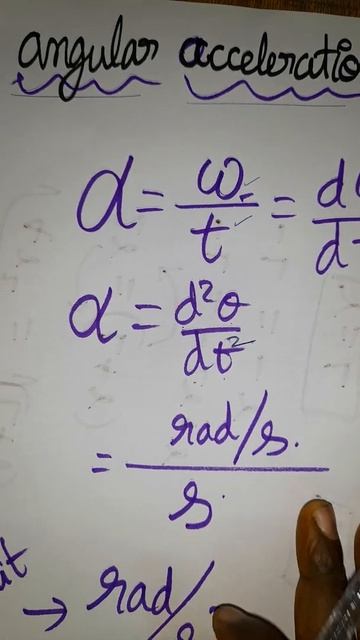 angular acceleratio
α = ω/t = d
α = d²θ/dt²
= rad/s.
s.
→ rad/